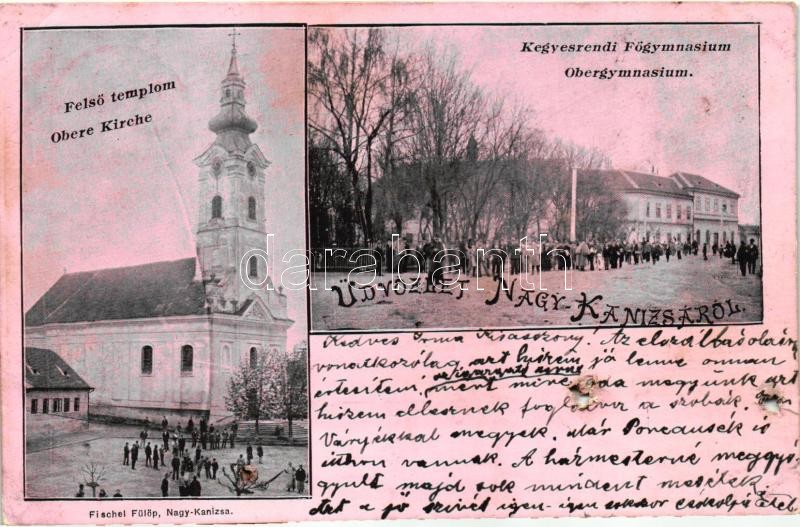 Felsö templom
Obere Kirche
Kegyesrendi Fögymnasium
Obergymnasium.
darabanth.com
ÜDVÖZLET NAGY-KANIZSÁRÓL.
Kedves Irma Kisasszony! Az elozálbádolásra
vonatkozólag azt hiszem jó lenne onnan
értesíteni, mert mire oda megyünk azt
hiszem ellesznek foglalva a szobák.
Ványékkal megyek. Már Poncausék is
itthon vannak. A házmesterné meggyó-
gyult majd sok mindent mesélek.
Azt a jó szívét igen-igen sokszor csókolja Etel
Fischel Fülöp, Nagy-Kanizsa.